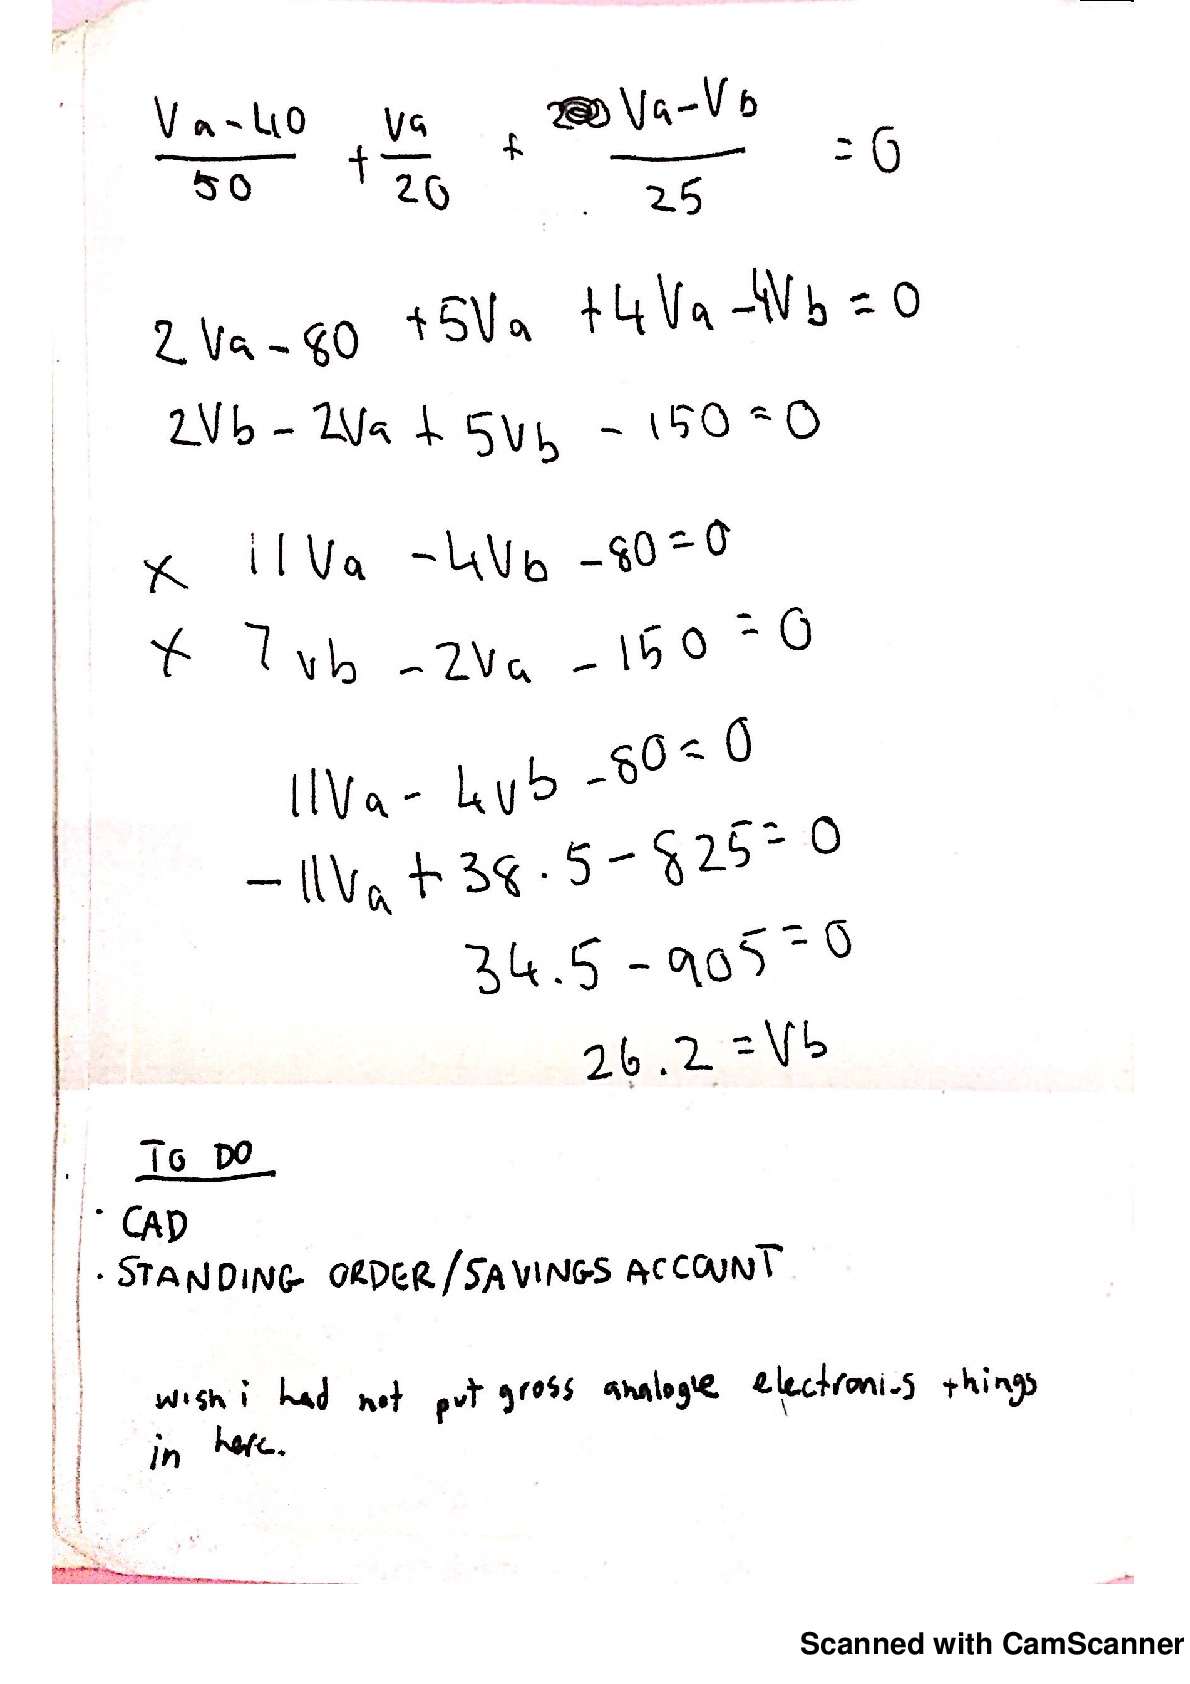 Va-40 / 50 + Va / 20 + Va-Vb / 25 = 0
2Va - 80 + 5Va + 4Va - 4Vb = 0
2Vb - 2Va + 5Vb - 150 = 0
x 11Va - 4Vb - 80 = 0
x 7Vb - 2Va - 150 = 0
11Va - 4Vb - 80 = 0
- 11Va + 38.5 - 825 = 0
34.5 - 905 = 0
26.2 = Vb
TO DO
· CAD
· STANDING ORDER/SAVINGS ACCOUNT
wish i had not put gross analogue electronics things
in here.
Scanned with CamScanner